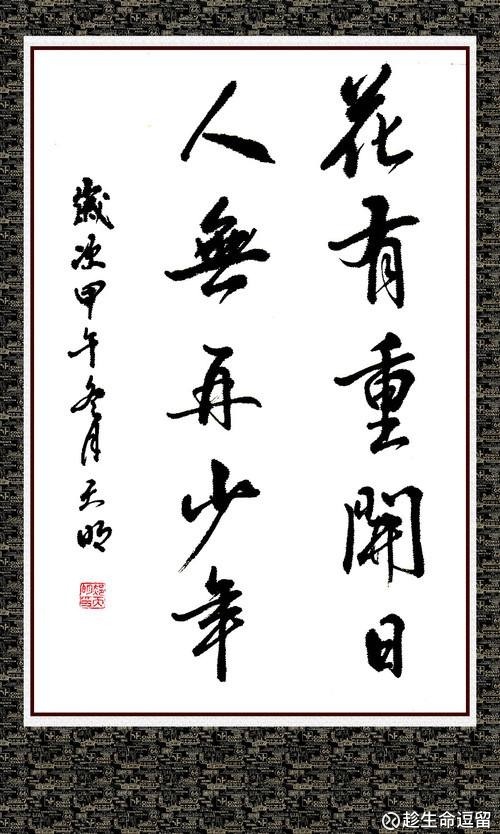 花有重開日
人無再少年
歲次甲午冬月天明
趁生命逗留